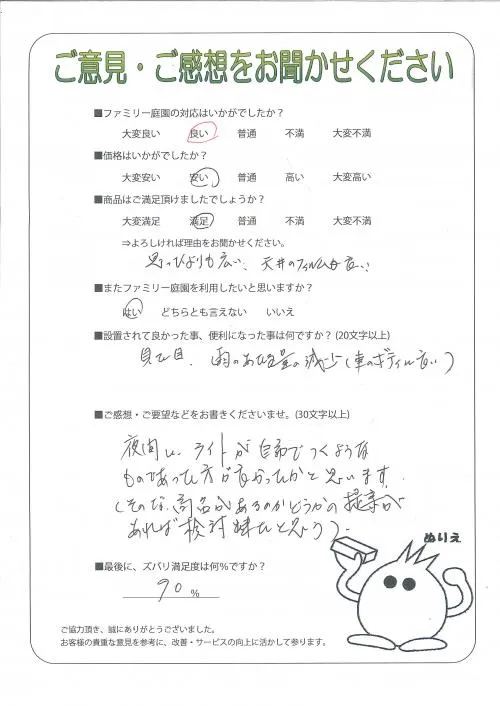 ご意見・ご感想をお聞かせください
■ファミリー庭園の対応はいかがでしたか？
大変良い 良い 普通 不満 大変不満
■価格はいかがでしたか？
大変安い 安い 普通 高い 大変高い
■商品はご満足頂けましたでしょうか？
大変満足 満足 普通 不満 大変不満
⇒よろしければ理由をお聞かせください。
思ったよりも広い、天井のフィルムが良い
■またファミリー庭園を利用したいと思いますか？
はい どちらとも言えない いいえ
■設置されて良かった事、便利になった事は何ですか？(20文字以上)
見た目、雨のあたる量の減少(車のボディに良い)
■ご感想・ご要望などをお書きくださいませ。(30文字以上)
夜間に、ライトが自動でつくような
ものであった方が良かったかと思います。
(そのな商品があるのかどうかの提案が
あれば検討したと思う)。
ぬりえ
■最後に、ズバリ満足度は何%ですか？
90%
ご協力頂き、誠にありがとうございました。
お客様の貴重な意見を参考に、改善・サービスの向上に活かして参ります。